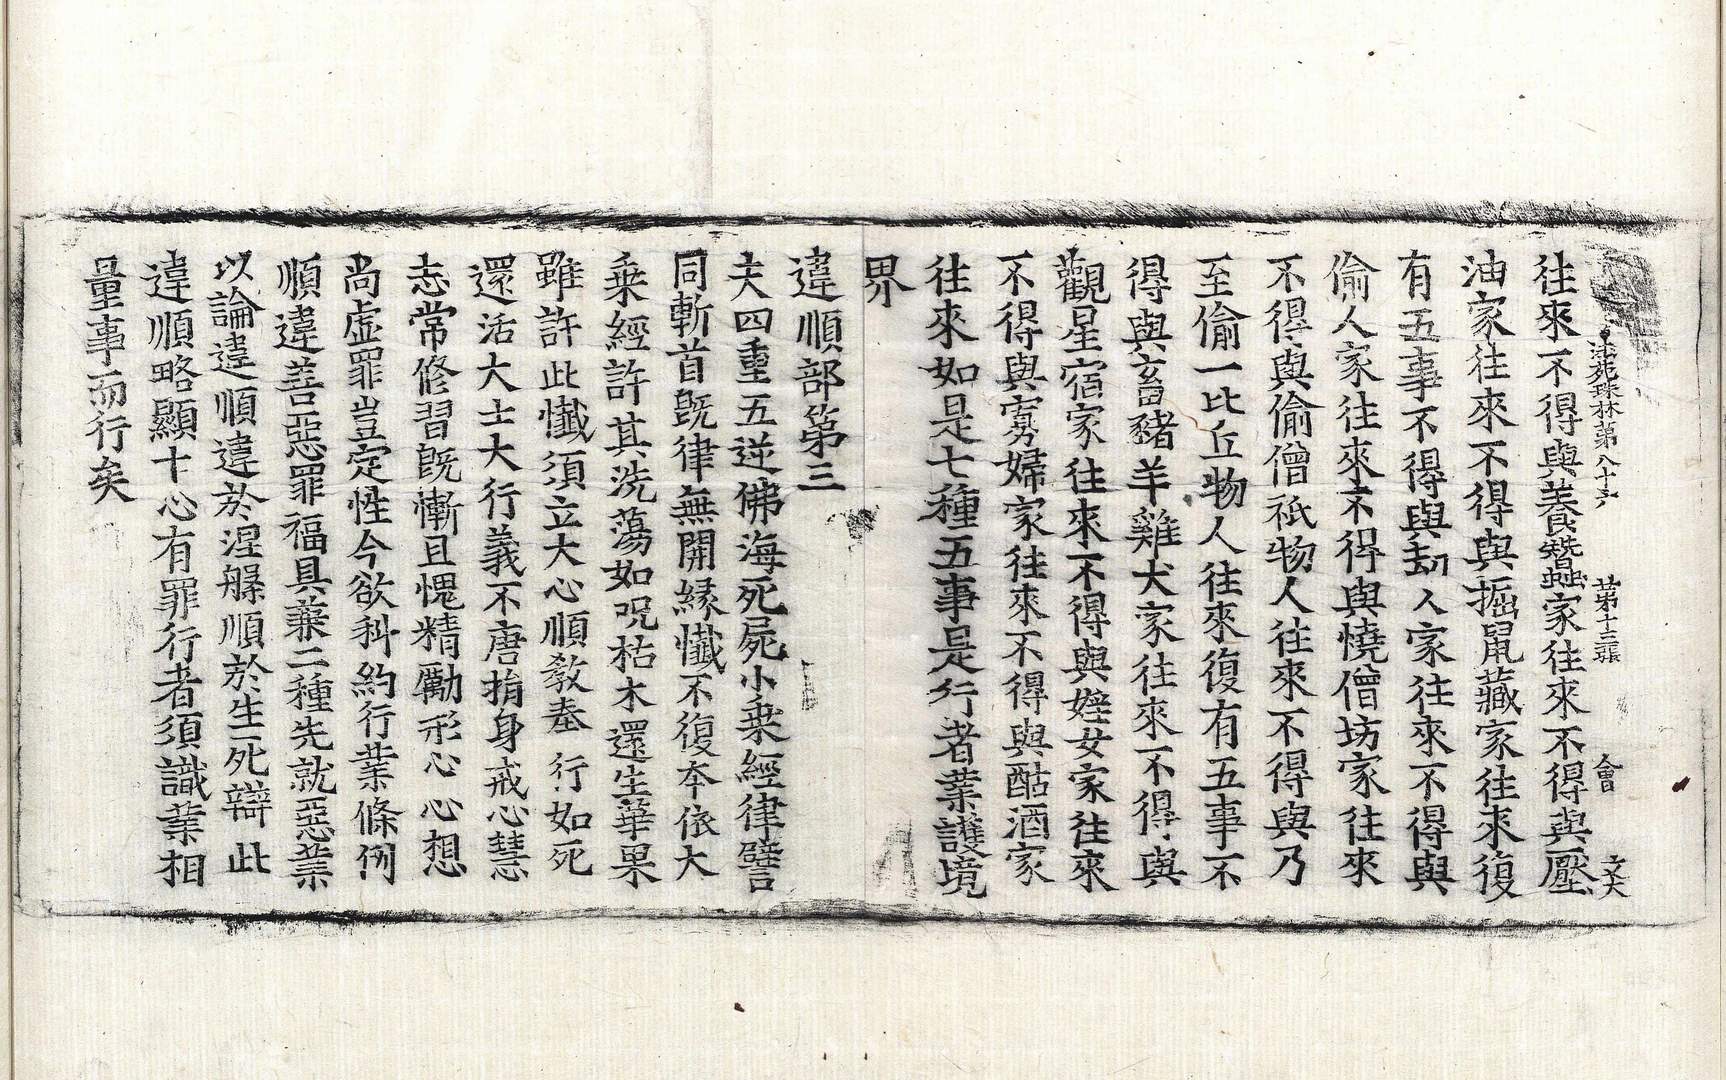 法苑珠林第八十六 第十三張 會 文大
往來不得與養蠶家往來不得與壓
油家往來不得與掘鼠藏家往來復
有五事不得與劫人家往來不得與
偷人家往來不得與燒僧坊家往來
不得與偷僧祇物人往來不得與乃
至偷一比丘物人往來復有五事不
得與畜豬羊雞犬家往來不得與
觀星宿家往來不得與婬女家往來
不得與寡婦家往來不得與酤酒家
往來如是七種五事是行者業護境
界
違順部第三
夫四重五逆佛海死屍小乘經律譬
同斬首旣律無開緣懺不復本依大
乘經許其洗蕩如呪枯木還生華果
雖許此懺須立大心順敎奉行如死
還活大士大行義不唐捐身戒心慧
志常修習旣慚且愧精勵形心心想
尚虛罪豈定性今欲科約行業條例
順違善惡罪福具兼二種先就惡業
以論違順違於涅槃順於生死辯此
違順略顯十心有罪行者須識業相
量事而行矣